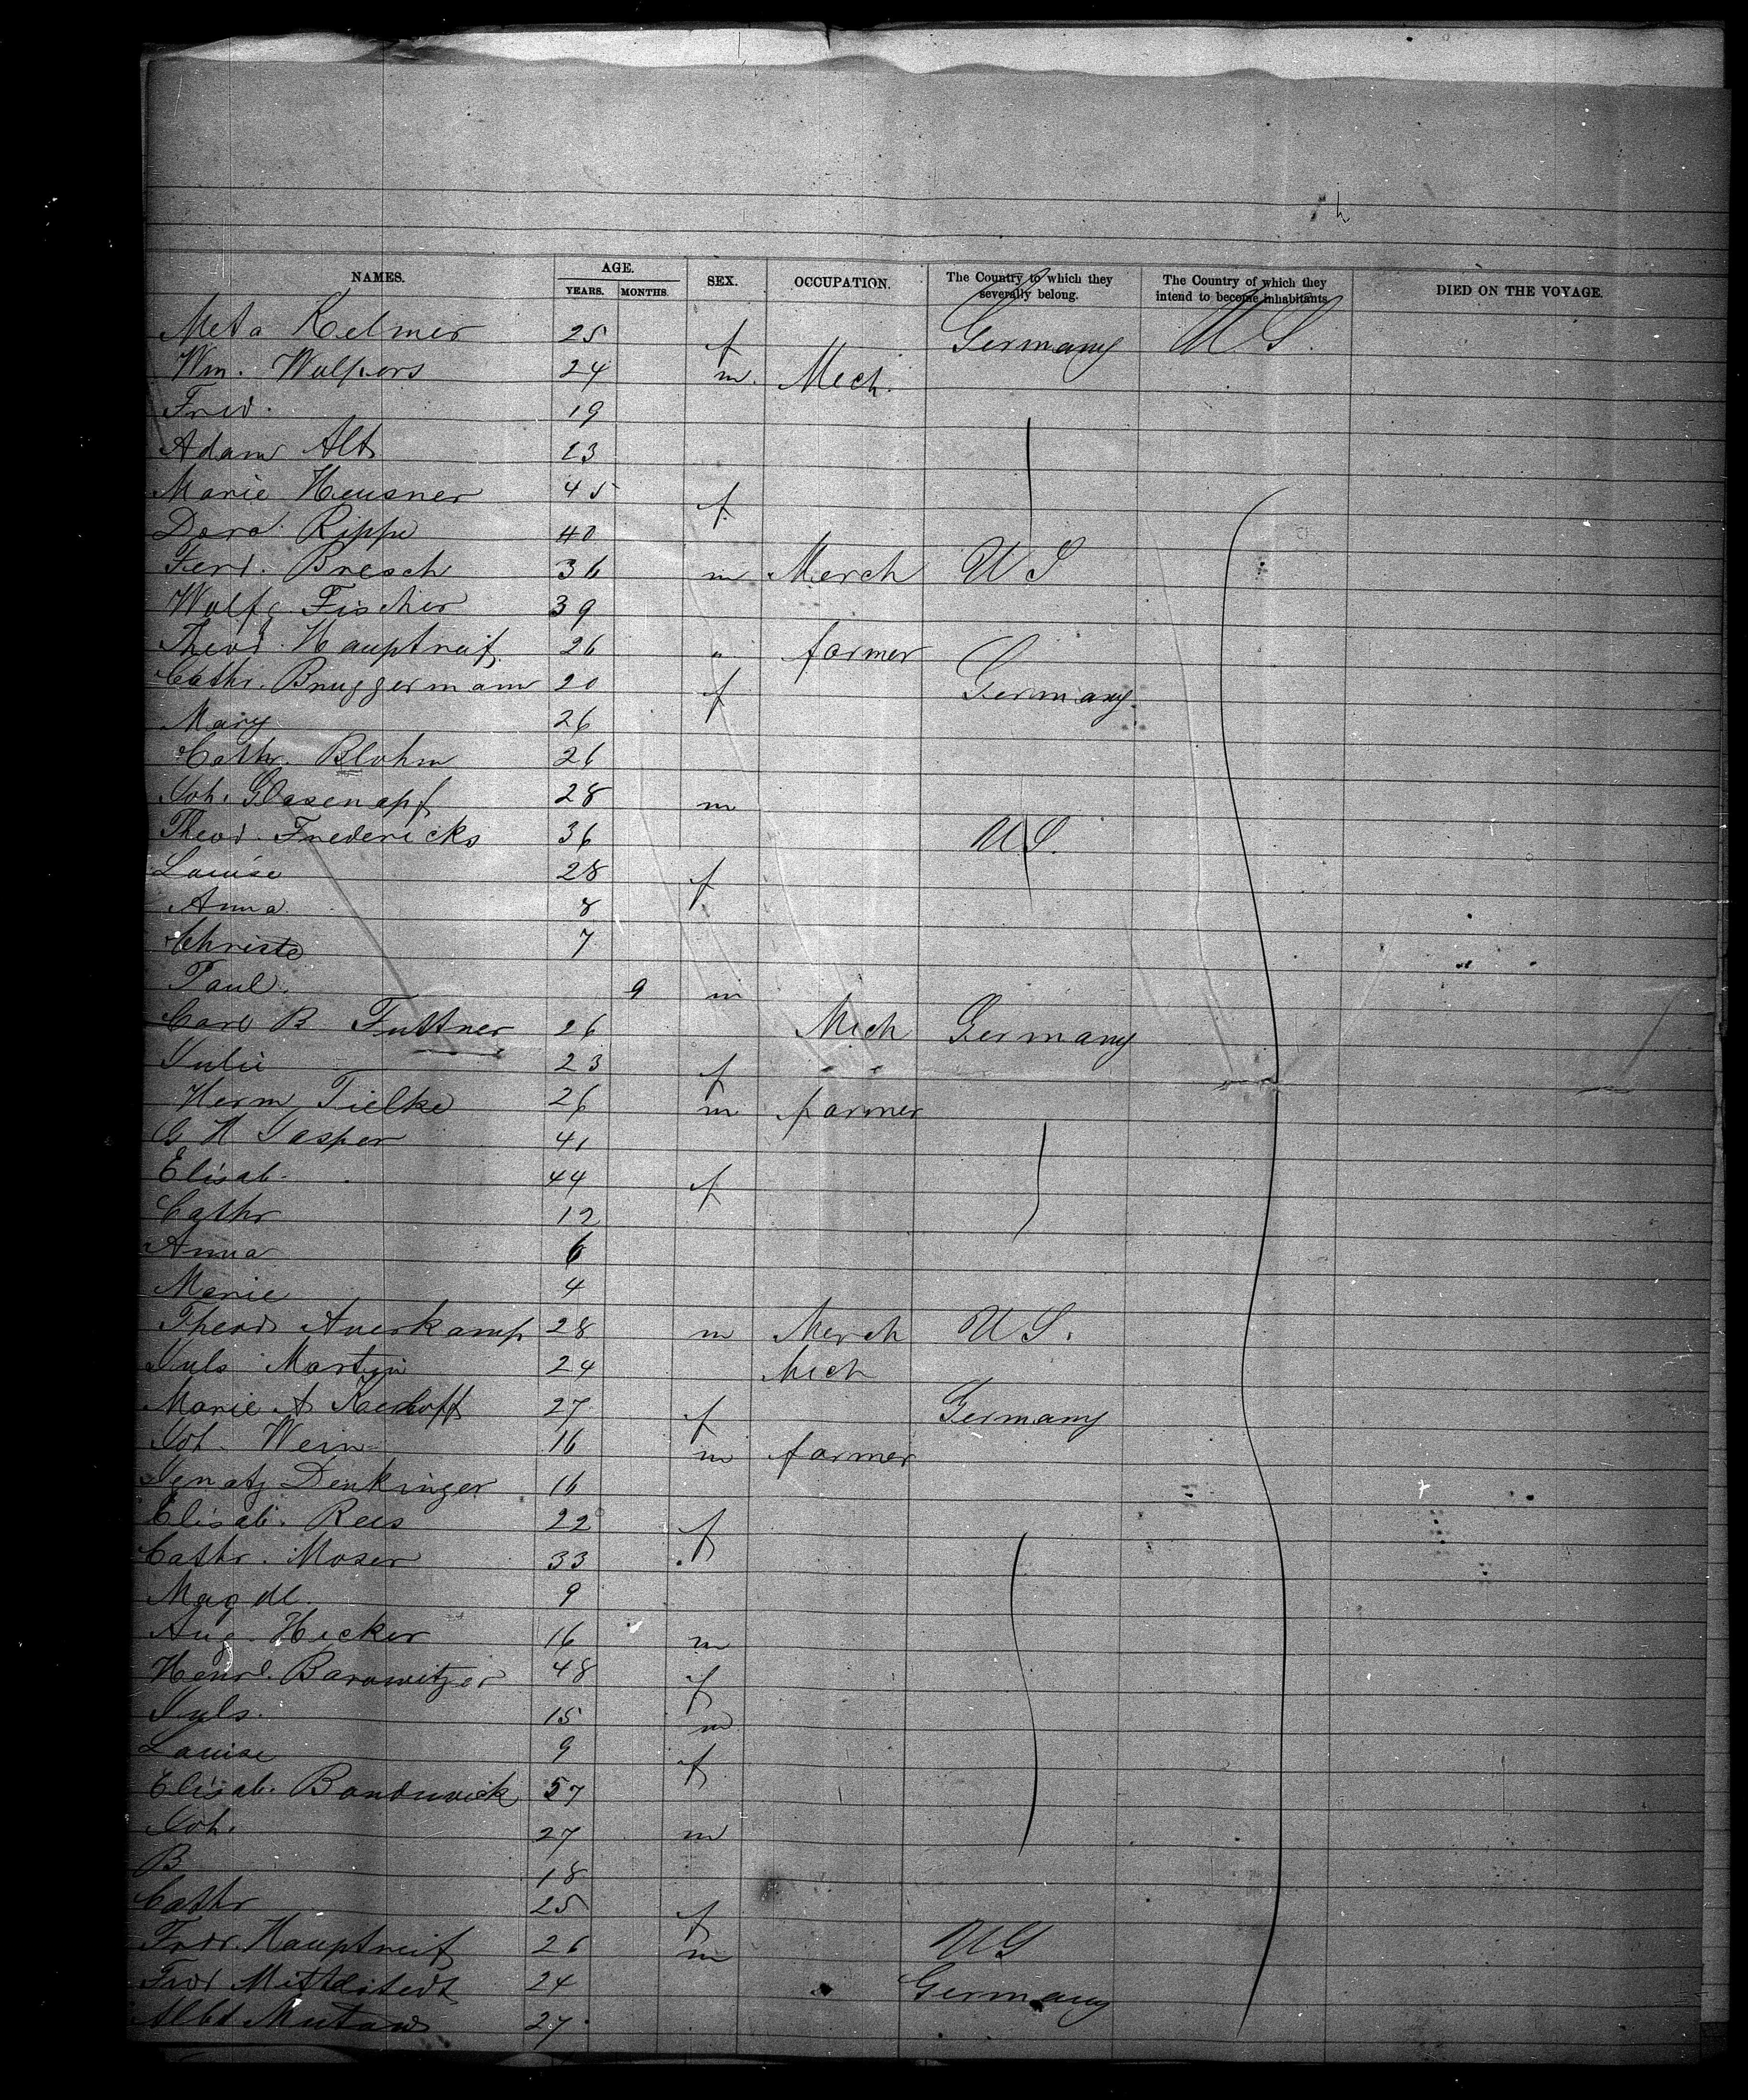 NAMES. AGE. YEARS. MONTHS. SEX. OCCUPATION. The Country to which they severally belong. The Country of which they intend to become inhabitants DIED ON THE VOYAGE.
Meta Kelmer 25 f Germany U. S.
Wm. Wulpers 24 m. Mech.
Fred. 19
Adam Alt 23
Marie Heusner 45 f
Dord. Rippe 40
Ferd. Bresch 36 m Merch U S
Wolfg. Fischer 39
Theod. Hauptreif 26 " farmer
Cathr. Bruggermann 20 f Germany
Mary 26
Cathr. Blohm 26
Joh. Glasenapf 28 m
Theod. Fredericks 36 U S.
Louise 28 f
Anna 8
Christe 7
Paul. 9 m
Carl B Futtner 26 Mech Germany
Julie 23 f
Herm Tielke 26 m farmer
G H Jasper 41
Elisab. 44 f
Cathr 12
Anna 6
Marie 4
Theod Averkamp 28 m Merch U S.
Juls Martin 24 Mech
Marie A Kerkhoff 27 f Germany
Joh. Wein 16 m farmer
Ignatz Denkinger 16
Elisab. Rees 22 f
Cathr. Moser 33 f
Magdl. 9
Aug. Hecker 16 m
Henrl. Barowitzer 48 f
Juls. 15 m
Louise 9 f
Elisab. 57
Joh. 27 m
B 18
Cathr 25 f
Fredr. Hauptreif 26 m U S
Fred Mitteldstedt 24 Germany
Albt 27